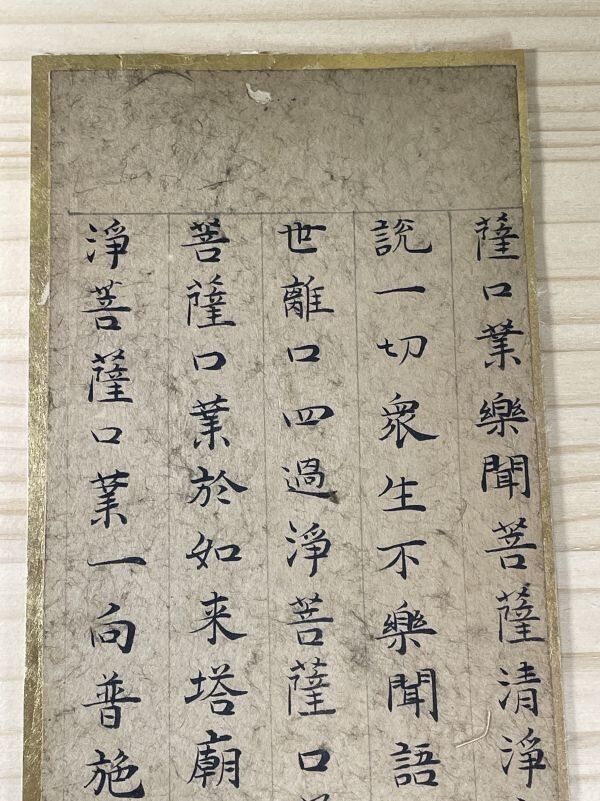 薩口業樂聞菩薩清淨
說一切衆生不樂聞語
世離口四過淨菩薩口
菩薩口業於如来塔廟
淨菩薩口業一向普施